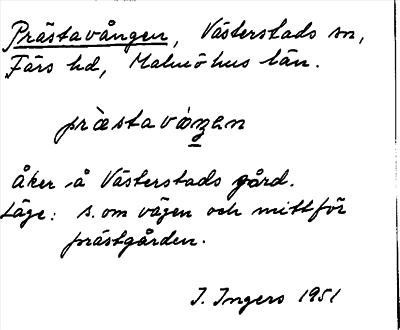 Prästavången, Västerstads sn,
Färs hd, Malmöhus län.
præ̀stavàŋen
åker å Västerstads gård.
Läge: s. om vägen och mitt för
prästgården.
I. Ingers 1951